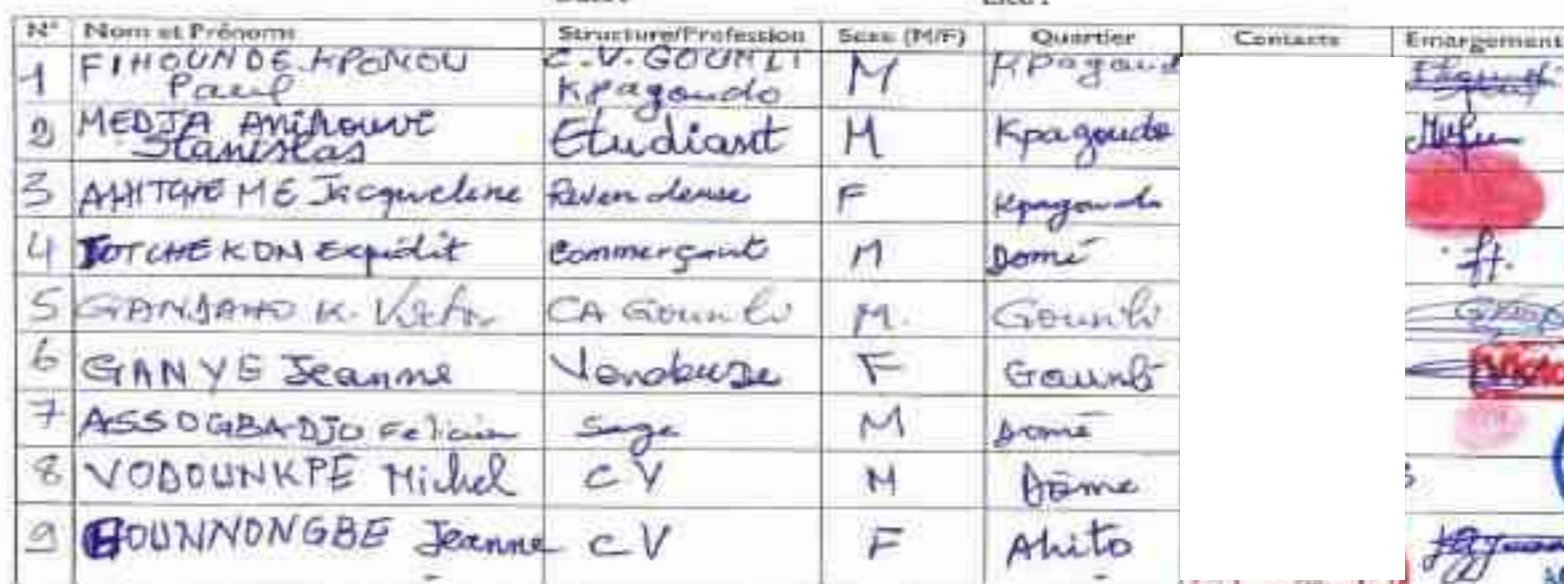 N° Nom et Prénoms Structure/Profession Sexe (M/F) Quartier Contacts Emargement
1 FIHOUNDE KPONOU Paul C.V. GOUNLI Kpagoudo M Kpagoud
2 MEDJA Anihouvi Stanislas Etudiant M Kpagoudo
3 Jacqueline Revendeuse F Kpagoudo
4 TOTCHEKON Expédit Commerçant M Domè
5 K. CA Gounli M. Gounli
6 GANYE Jeanne Vendeuse F Gounli
7 ASSOGBADJO Felicien Sage M Domè
8 VODOUNKPE Michel CV M Dômè
9 HOUNNONGBE Jeanne CV F Ahito